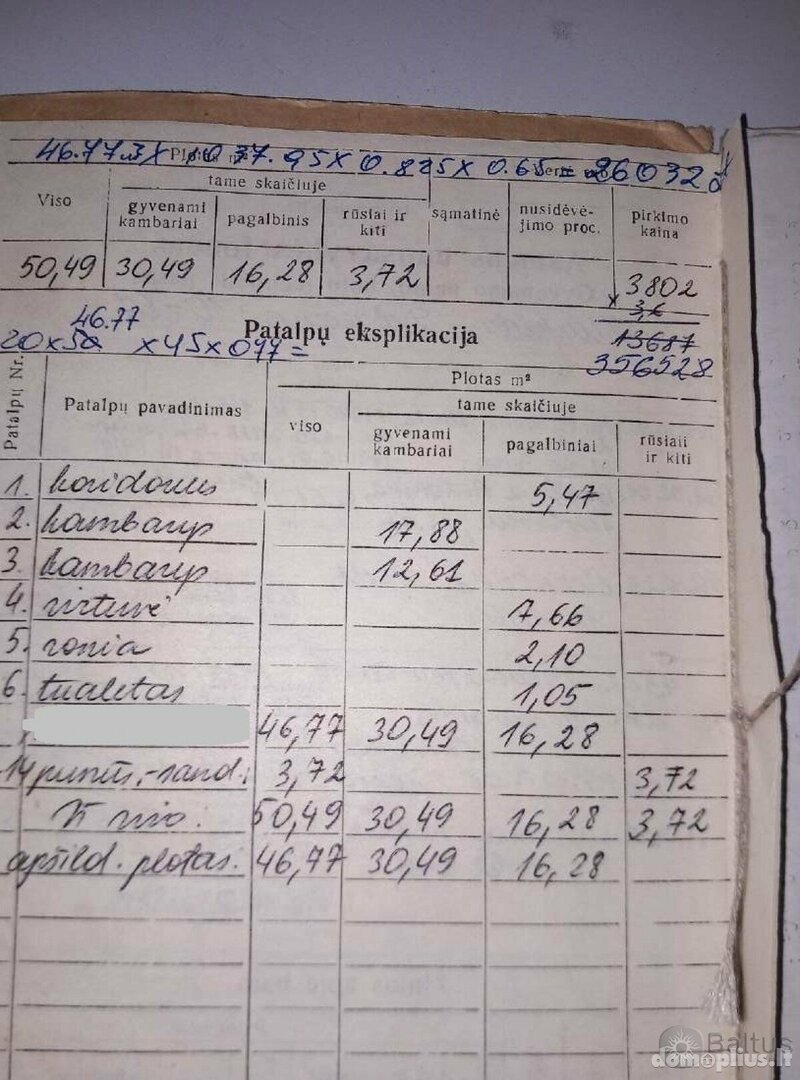 46.77 37.95 x 0.825 x 0.65 = 26032
tame skaičiuje
Viso gyvenami kambariai pagalbinis rūsiai ir kiti sąmatinė nusidėvė-jimo proc. pirkimo kaina
50,49 30,49 16,28 3,72 3802
x 3,6
46.77 Patalpų eksplikacija 13687
20 x 50 x 45 x 077 = 356528
Patalpų Nr. Patalpų pavadinimas Plotas m²
viso tame skaičiuje
gyvenami kambariai pagalbiniai rūsiai ir kiti
1. koridorius 5,47
2. kambarys 17,88
3. kambarys 12,61
4. virtuvė 7,66
5. vonia 2,10
6. tualetas 1,05
46,77 30,49 16,28
14 pusrūs. sand. 3,72 3,72
Iš viso: 50,49 30,49 16,28 3,72
apšild. plotas. 46,77 30,49 16,28
Baltus
domoplius.lt